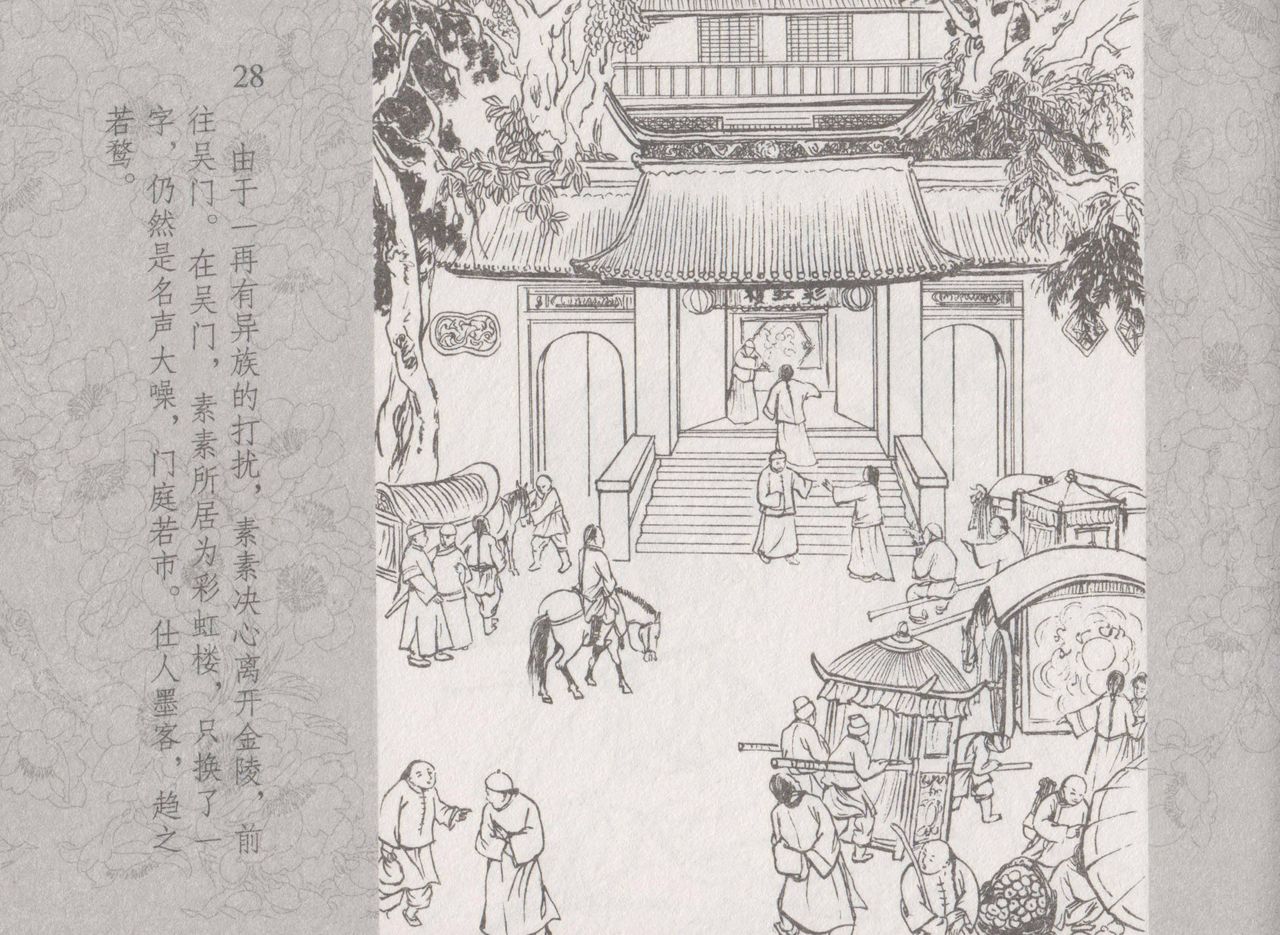 28
由于一再有异族的打扰，素素决心离开金陵，前
往吴门。在吴门，素素所居为彩虹楼，只换了一
字，仍然是名声大噪，门庭若市。仕人墨客，趋之
若鹜。